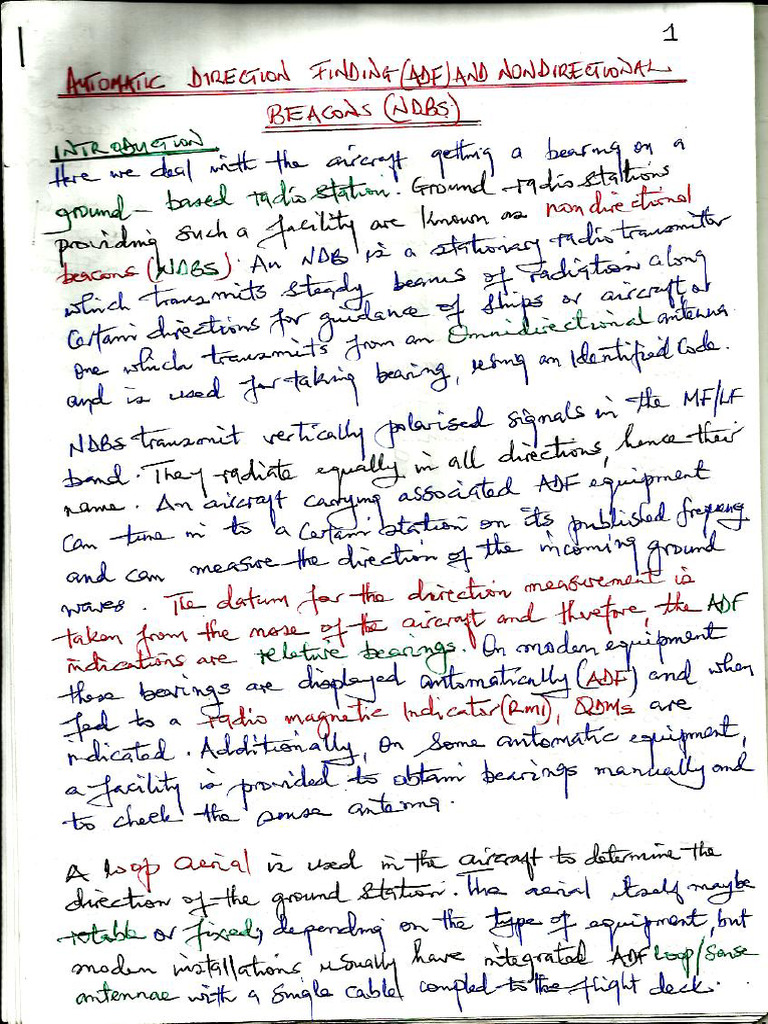 1
AUTOMATIC DIRECTION FINDING (ADF) AND NONDIRECTIONAL
BEACONS (NDBS)
INTRODUCTION
Here we deal with the aircraft getting a bearing on a
ground-based radio station. Ground radio stations
providing such a facility are known as nondirectional
beacons (NDBS). An NDB is a stationary radio transmitter
which transmits steady beams of radiation along
certain directions for guidance of ships or aircraft or
one which transmits from an Omnidirectional antenna
and is used for taking bearing, using an Identified Code.
NDBs transmit vertically polarised signals in the MF/LF
band. They radiate equally in all directions, hence their
name. An aircraft carrying associated ADF equipment
can tune in to a certain station on its published frequency
and can measure the direction of the incoming ground
waves. The datum for the direction measurement is
taken from the nose of the aircraft and therefore, the ADF
indications are relative bearings. On modern equipment
these bearings are displayed automatically (ADF) and when
fed to a radio magnetic Indicator (RMI), QDMs are
indicated. Additionally, on some automatic equipment,
a facility is provided to obtain bearings manually and
to check the sense antenna.
A loop aerial is used in the aircraft to determine the
direction of the ground station. The aerial itself maybe
rotable or fixed, depending on the type of equipment, but
modern installations usually have integrated ADF loop/sense
antennae with a single cable coupled to the flight deck.